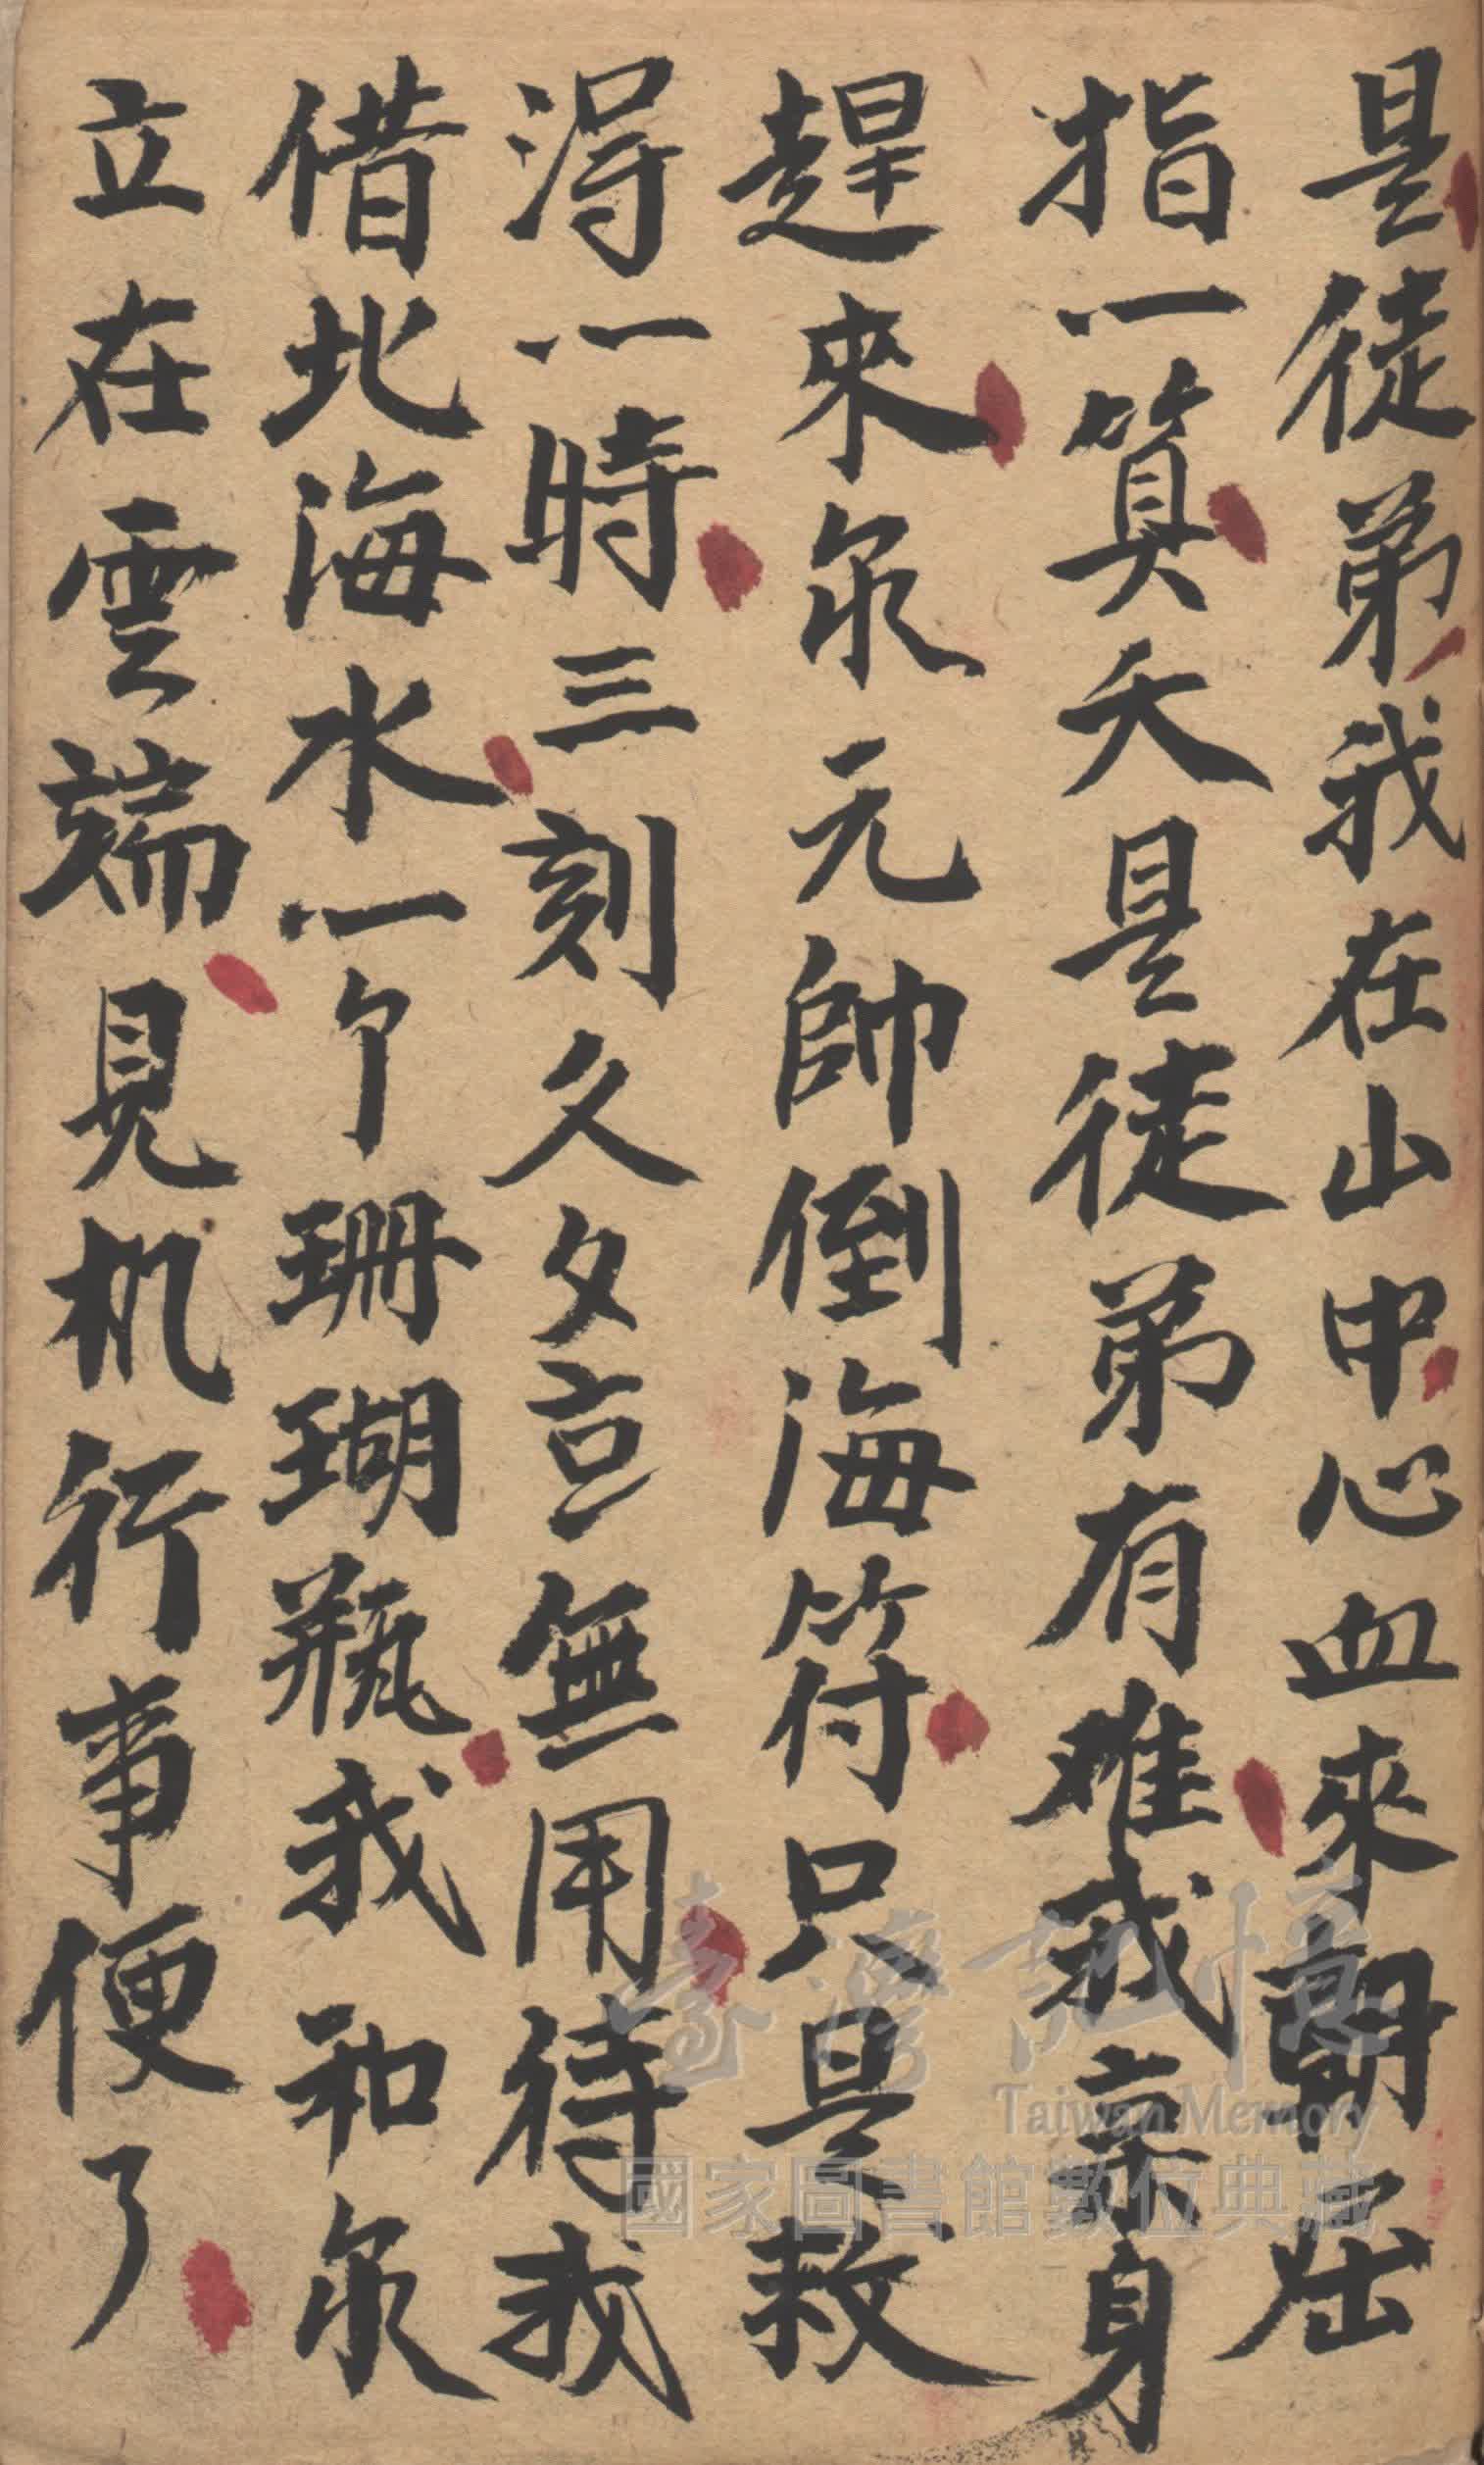 是徒弟我在山中心血來朝屈
指一算夭是徒弟有难我亲身
趕來永元帥倒海符只是救
淂一時三刻久久言無用待我
借北海水一卩珊瑚瓶我和永
立在雲端見机行事便了
臺灣記憶
Taiwan Memory
國家圖書館數位典藏